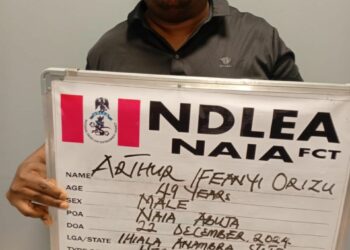 NDLEA
NAIA FCT
NAME ARTHUR IFEANYI ORIZU
AGE 49 YEARS
SEX MALE
POA NAIA ABUJA
DOA 22 DECEMBER, 2024
LGA/STATE IHIALA ANAMBRA STATE